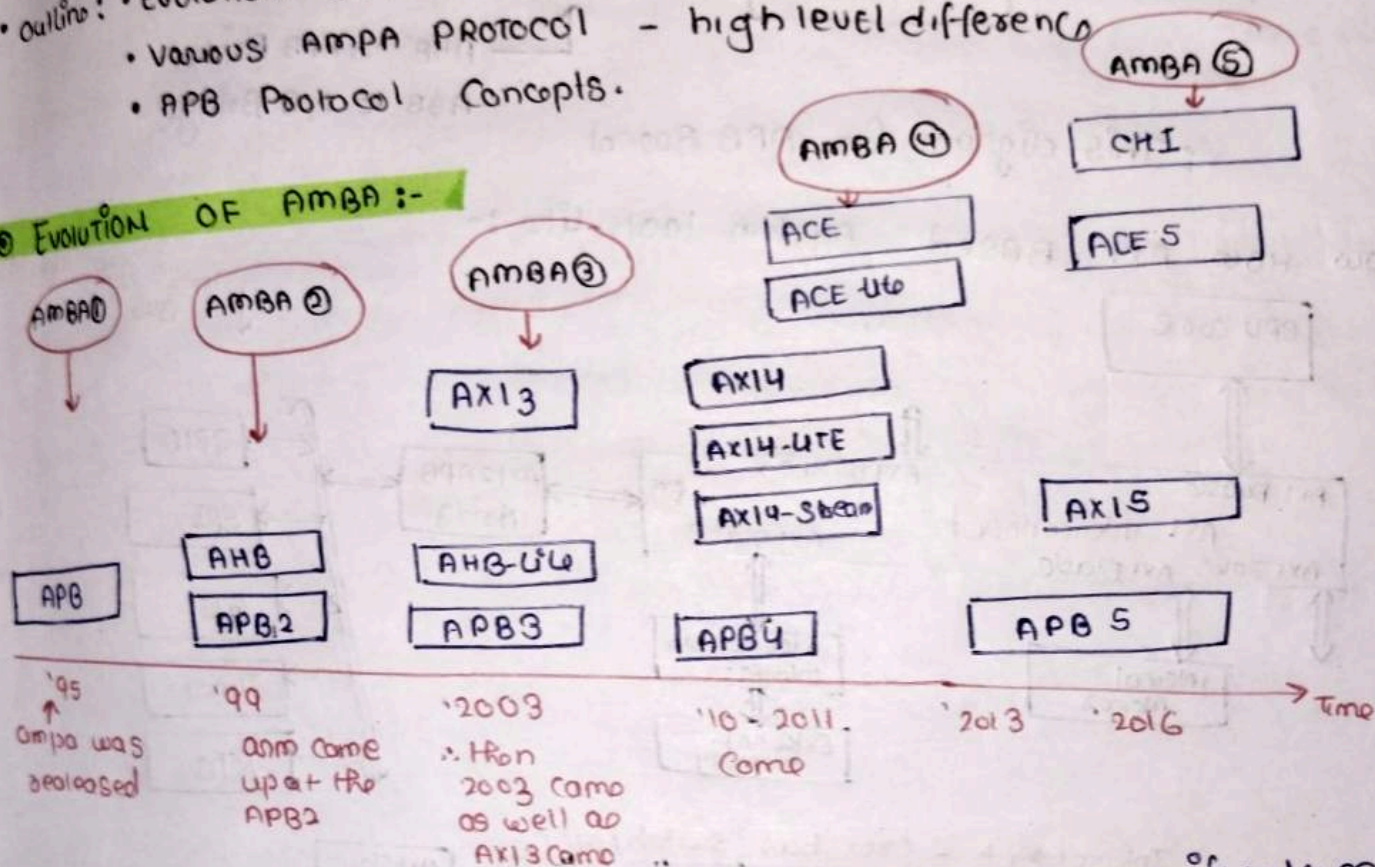 • Outline: •
• VARIOUS AMPA PROTOCOL - high level difference
• APB Protocol Concepts.
EVOLUTION OF AMBA :-
AMBA①
AMBA ②
AMBA③
AMBA ④
AMBA ⑤
CHI
ACE
ACE 5
ACE Lite
AXI3
AXI4
AXI4-LITE
AXI4-Stream
AXI5
AHB
AHB-Lite
APB
APB2
APB3
APB4
APB 5
'95
'99
'2003
'10 - 2011.
'2013
'2016
Time
ampa was
realeased
arm came
up at the
APB2
∴ then
2003 came
as well as
AXI3 came
Come
of